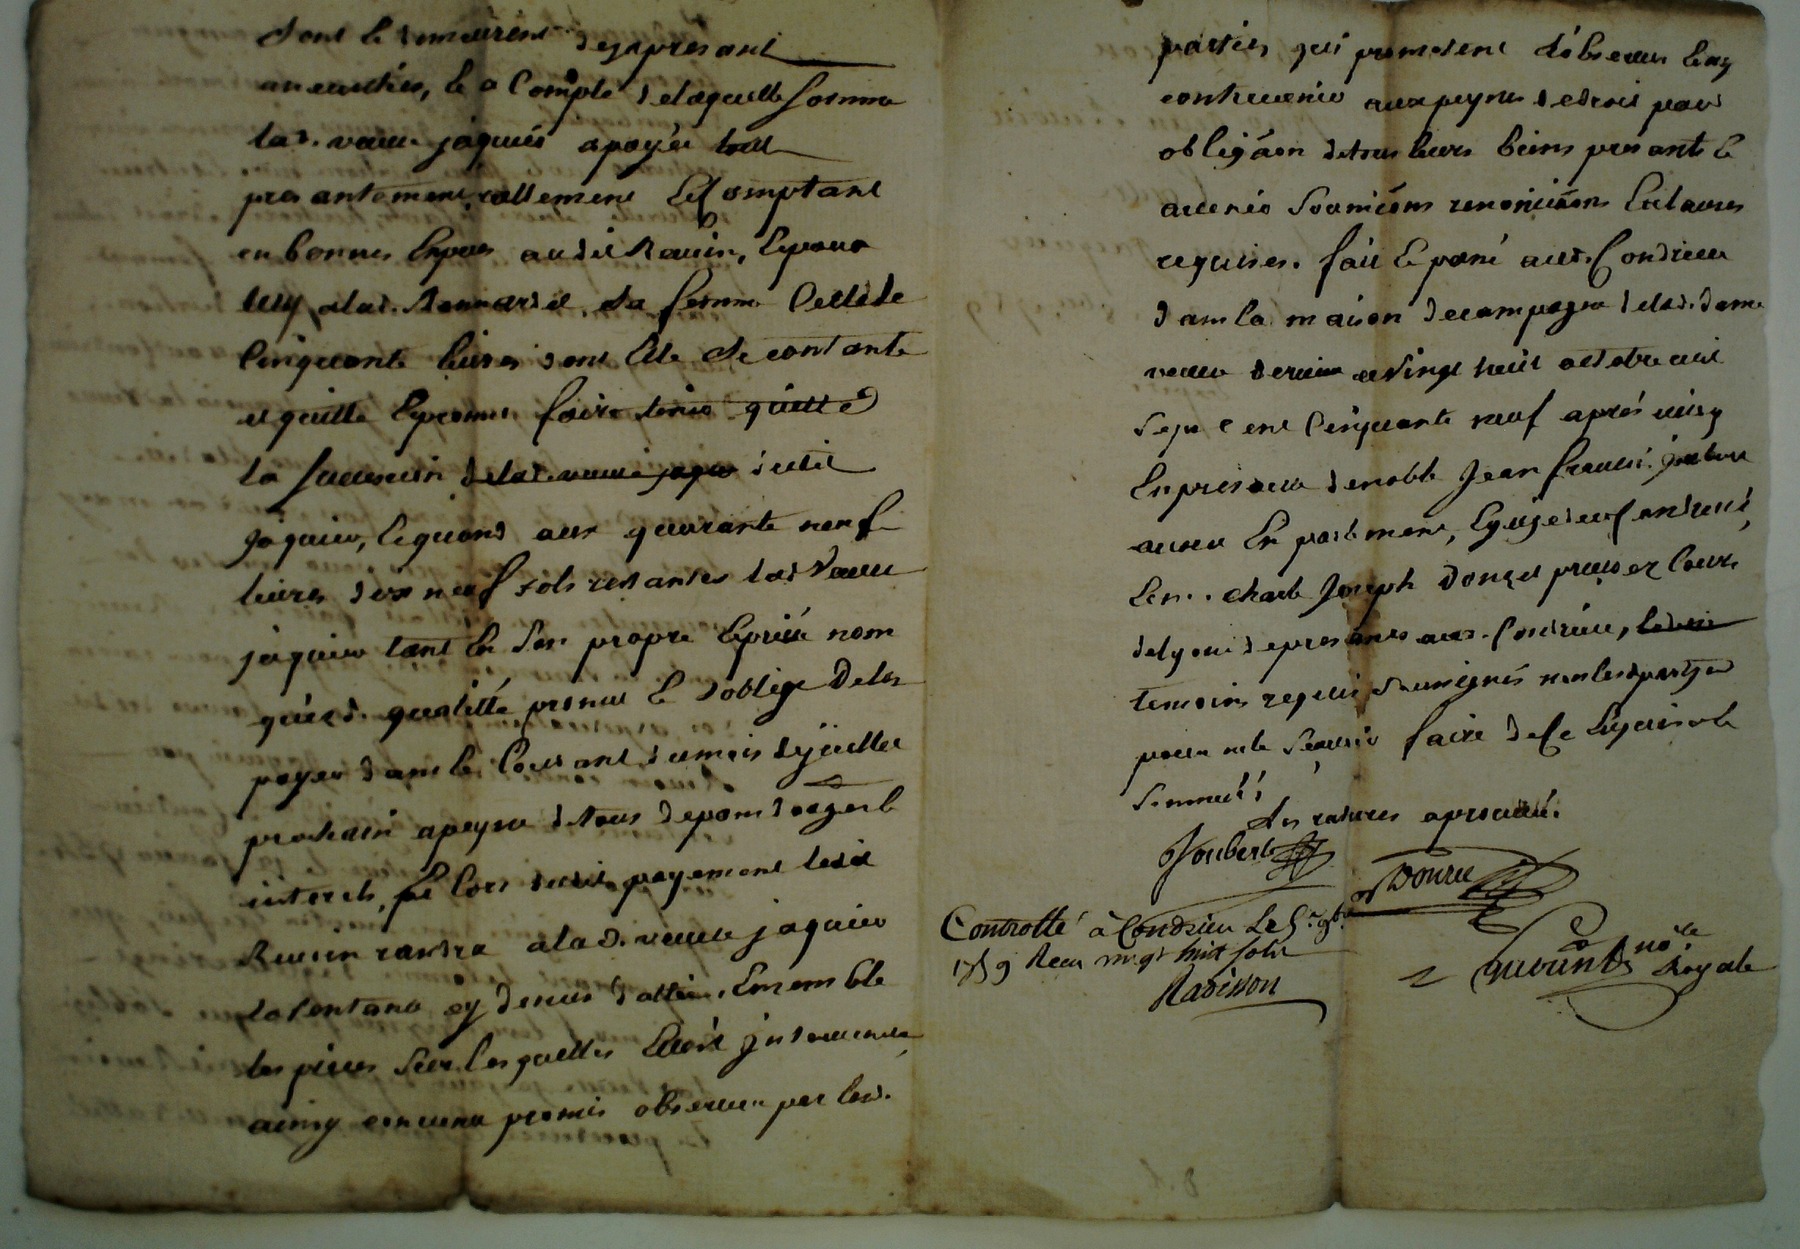 dont le demeurent desapresant
aneanties, & a Compte delaquelle somme
lad. veuve jaquier a payée
presantement reellement & Comptant
en bonnes Especes audit Rauin, & pour
luy alad. sa femme Cellede
Cinquante livres dont Elle se contante
et quitte & promet faire tenir quitte
la succession delad. veuve jaquier dudit
jaquier, & quand aux quarante neuf
livres dix neuf sols restantes lad. veuve
jaquier tant En son propre & privé nom
qu'esd. qualitté promet & s'oblige de les
payer dans le Courant du mois de juillet
prochain apeyne de tous depans domages &
interets, & lors dudit payement ledit
Rauin randra alad. veuve jaquier
la sentance cy dessus dattée, Ensemble
les pieces sur lesquelles Elle est intervenue
ainsy convenu promis observer par lesd.
parties qui promettent d'observer & ny
contrevenir aux peynes de droit par
obligãon de tous leurs biens presants &
avenir soumicõns renonciãons & clauses
requises. fait & passé aud. Condrieu
dans la maison de campagne delad. dame
veuve le vingt huit octobre mil
sept cent Cinquante neuf aprés midy
En presence de noble Jean francois joubert
avocat En parlement, & juge de Condrieu,
& sr. charle Joseph Donzel pratz ez Cours
de lyon de presant aud. Condrieu,
temoins requis soussignés non lesd. parties
pour ne le sçavoir faire de ce Enquis &
sommés;
les ratures aprouvée.
Joubert
Controllé à Condrieu Le 5.e 9bre
1759 Recu vingt huit sols
Radisson
nõ.re
Royale